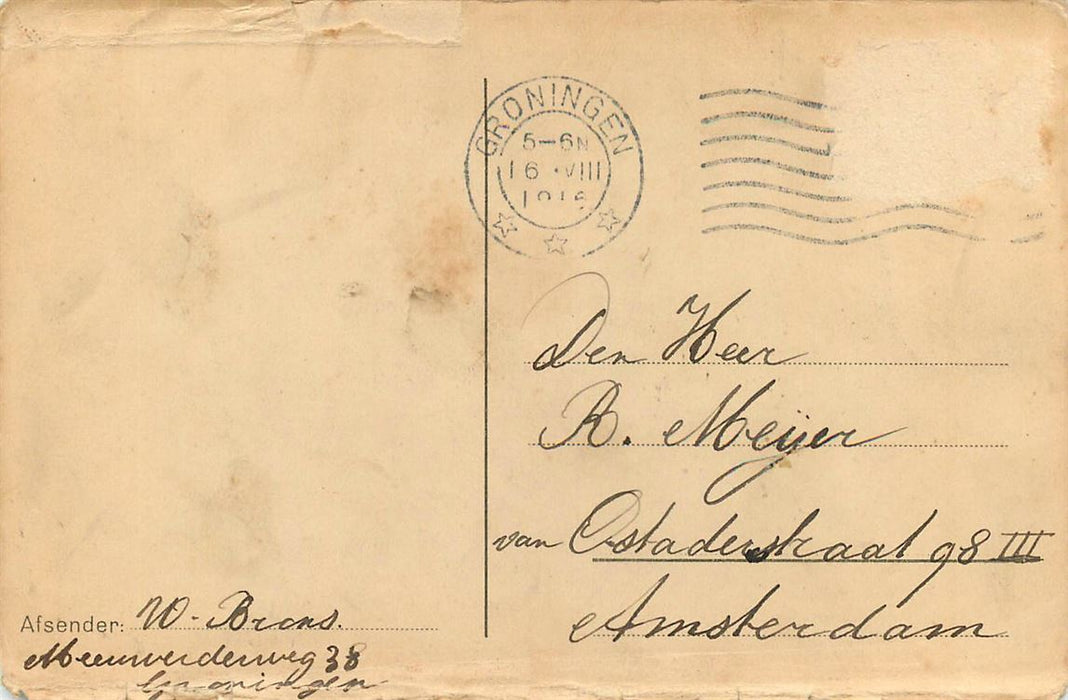 GRONINGEN
5-6N
16 VIII
1916
Den Heer
R. Meijer
van Ostadestraat 98 III
Amsterdam
Afsender: W. Brons.
Meeuwerderweg 38
Groningen